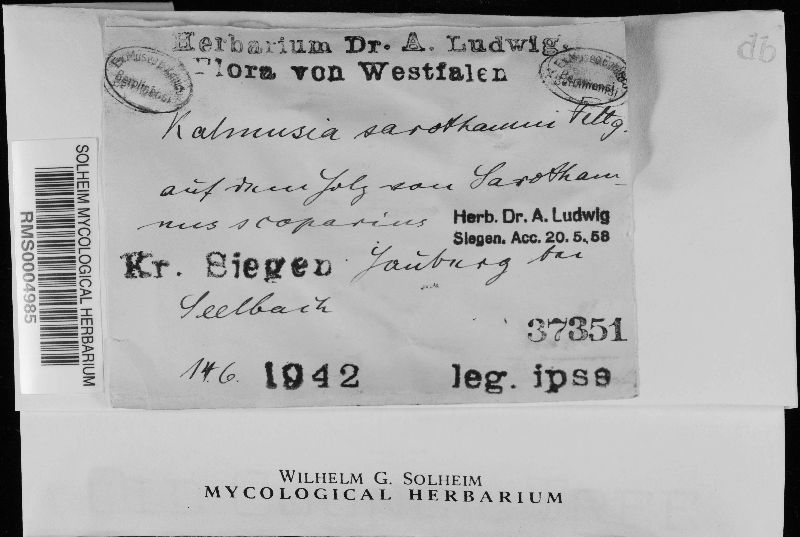 Herbarium Dr. A. Ludwig.
Flora von Westfalen
Kalmusia sarothamni Feltg.
auf dem Holz von Sarotham-
nus scoparius
Herb. Dr. A. Ludwig
Siegen. Acc. 20. 5. 58
Kr. Siegen bei
Seelbach
37351
14.6. 1942 leg. ipse
db
SOLHEIM MYCOLOGICAL HERBARIUM
RMS0004985
WILHELM G. SOLHEIM
MYCOLOGICAL HERBARIUM